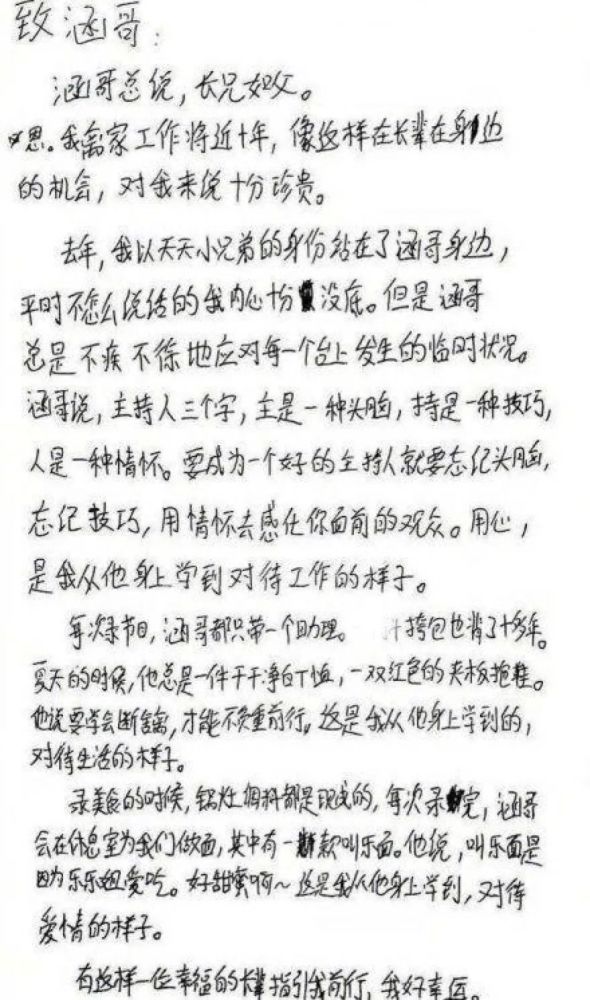 致涵哥：
涵哥总说，长兄如父。
恩。我离家工作将近十年，像这样在长辈在身边
的机会，对我来说十分珍贵。
去年，我以天天小兄弟的身份站在了涵哥身边，
平时不怎么说话的我内心十分没底。但是涵哥
总是不疾不徐地应对每一个台上发生的临时状况。
涵哥说，主持人三个字，主是一种头脑，持是一种技巧，
人是一种情怀。要成为一个好的主持人就要忘记头脑，
忘记技巧，用情怀去感任你面前的观众。用心，
是我从他身上学到对待工作的样子。
每次录节目，涵哥都只带一个助理。 挎包也背了十多年。
夏天的时候，他总是一件干干净白T恤，一双红色的夹板拖鞋。
他说要学会断舍离，才能不负重前行。这是我从他身上学到的，
对待生活的样子。
录美食的时候，锅灶调料都是现成的，每次录完，涵哥
会在休息室为我们做面，其中有一款叫乐面。他说，叫乐面是
因为乐乐姐爱吃。好甜蜜啊～这是我从他身上学到，对待
爱情的样子。
有这样一位幸福的长辈指引我前行，我好幸运。